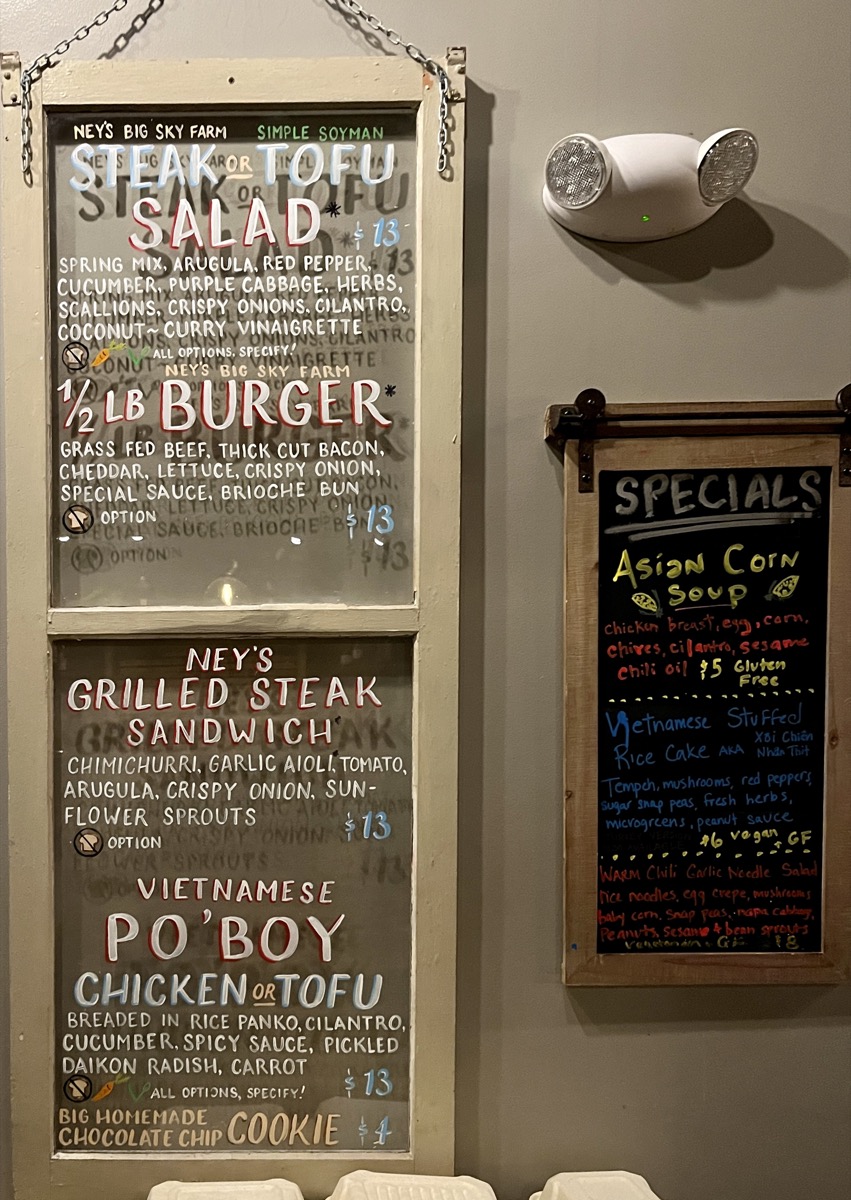 NEY'S BIG SKY FARM SIMPLE SOYMAN
STEAK OR TOFU
SALAD* $13
SPRING MIX, ARUGULA, RED PEPPER,
CUCUMBER, PURPLE CABBAGE, HERBS,
SCALLIONS, CRISPY ONIONS, CILANTRO,
COCONUT~CURRY VINAIGRETTE
ALL OPTIONS, SPECIFY!
NEY'S BIG SKY FARM
1/2 LB BURGER*
GRASS FED BEEF, THICK CUT BACON,
CHEDDAR, LETTUCE, CRISPY ONION,
SPECIAL SAUCE, BRIOCHE BUN
OPTION $13
NEY'S
GRILLED STEAK
SANDWICH*
CHIMICHURRI, GARLIC AIOLI, TOMATO,
ARUGULA, CRISPY ONION, SUN-
FLOWER SPROUTS
$13
OPTION
VIETNAMESE
PO'BOY
CHICKEN OR TOFU
BREADED IN RICE PANKO, CILANTRO,
CUCUMBER, SPICY SAUCE, PICKLED
DAIKON RADISH, CARROT
ALL OPTIONS, SPECIFY! $13
BIG HOMEMADE
CHOCOLATE CHIP COOKIE $4
SPECIALS
Asian Corn
Soup
chicken breast, egg, corn,
chives, cilantro, sesame
chili oil $5 Gluten
Free
Vietnamese Stuffed
Rice Cake AKA Xôi Chiên
Nhân Thịt
Tempeh, mushrooms, red peppers,
sugar snap peas, fresh herbs,
microgreens, peanut sauce
$6 vegan + GF
Warm Chili Garlic Noodle Salad
rice noodles, egg crepe, mushrooms
baby corn, snap peas, napa cabbage,
Peanuts, sesame + bean sprouts
vegetarian + GF $8